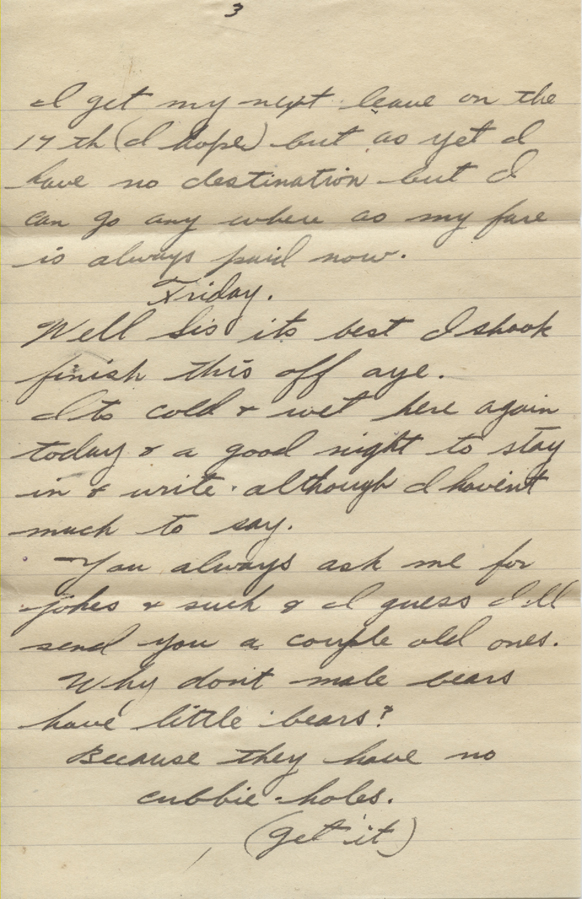 3
I get my next leave on the
17th (I hope) but as yet I
have no destination but I
can go any where as my fare
is always paid now.
Friday.
Well Sis its best I
finish this off aye.
Its cold & wet here again
today & a good night to stay
in & write. although I havent
much to say.
You always ask me for
jokes & such & I guess I'll
send you a couple old ones.
Why don't male bears
have little bears?
Because they have no
cubbie-holes.
(get it)